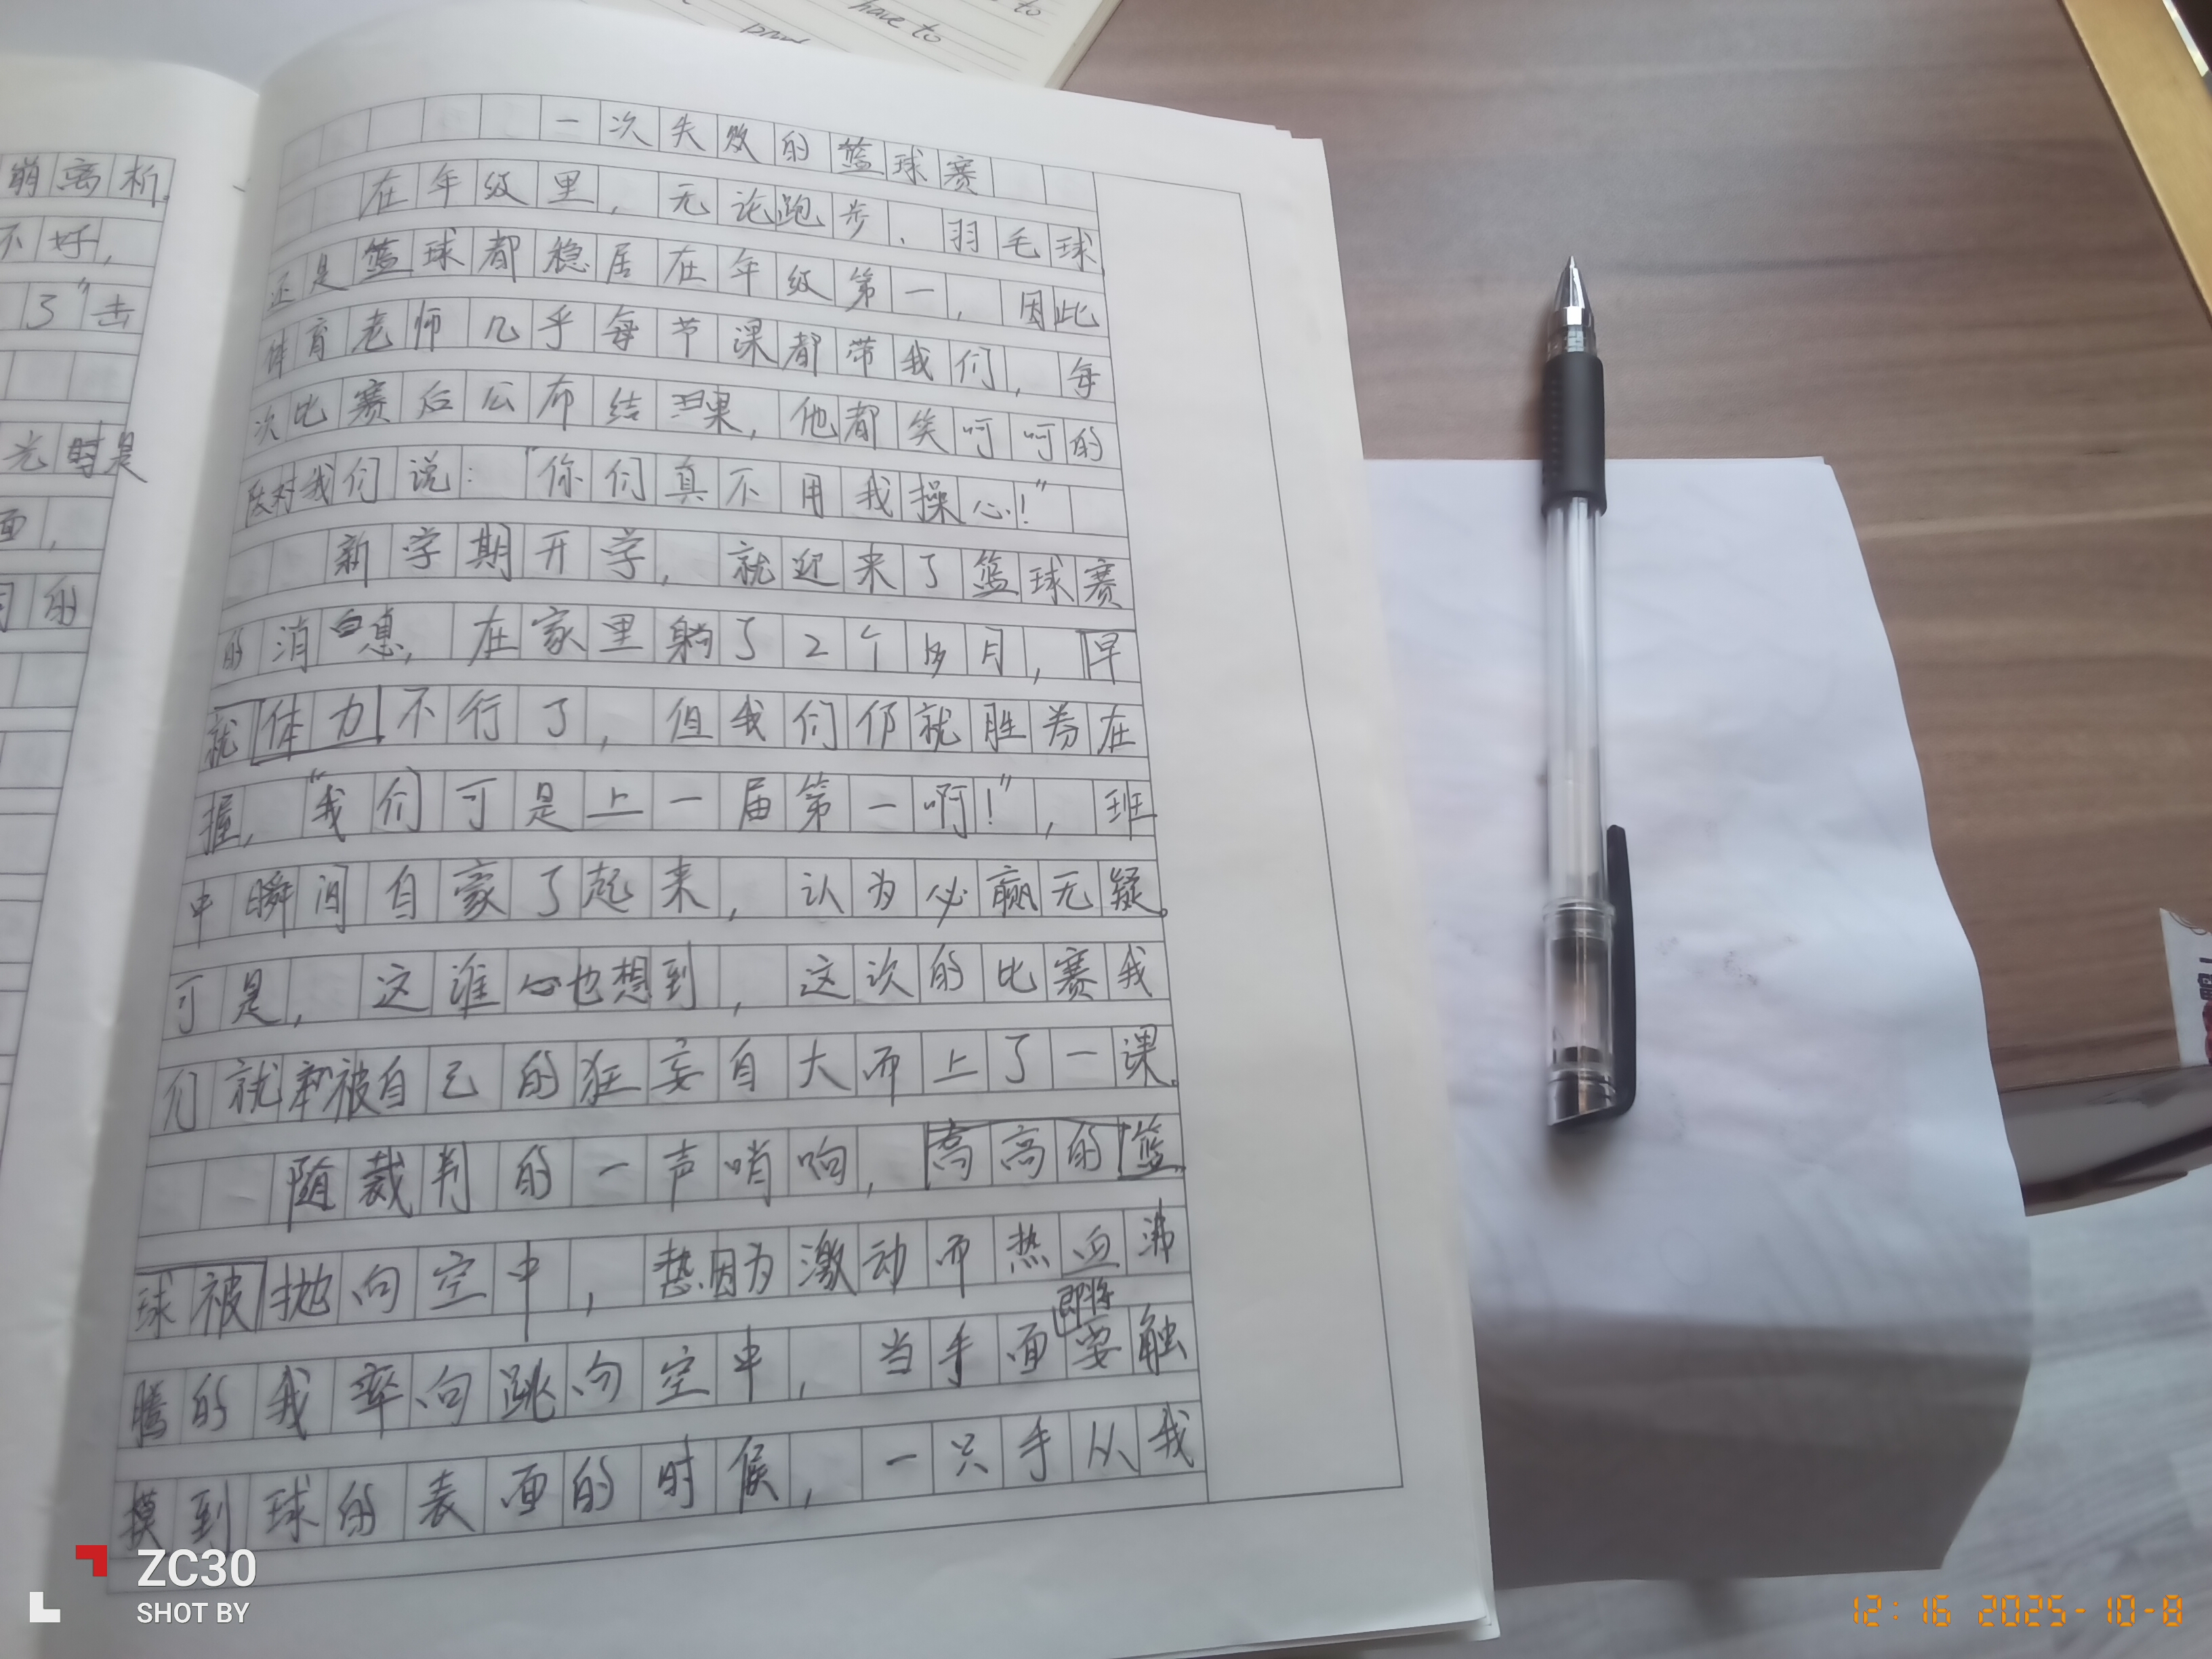 have to
to
崩离析。
不好，
了"击
光时是
面，
的
一次失败的篮球赛
在年级里，无论跑步、羽毛球
还是篮球都稳居在年级第一，因此
体育老师几乎每节课都带我们，每
次比赛后公布结果，他都笑呵呵的
对我们说："你们真不用我操心！"
新学期开学，就迎来了篮球赛
的消息，在家里躺了2个月，早
就体力不行了，但我们仍就胜券在
握，"我们可是上一届第一啊！"，班
中瞬间自豪了起来，认为必赢无疑。
可是，这谁也想到，这次的比赛我
们就被自己的狂妄自大而上了一课。
随裁判的一声哨响，高高的篮
球被抛向空中，因为激动而热血沸
腾的我率向跳向空中，当手面即将要触
摸到球的表面的时候，一只手从我
ZC30
SHOT BY
12:16 2025-10-8